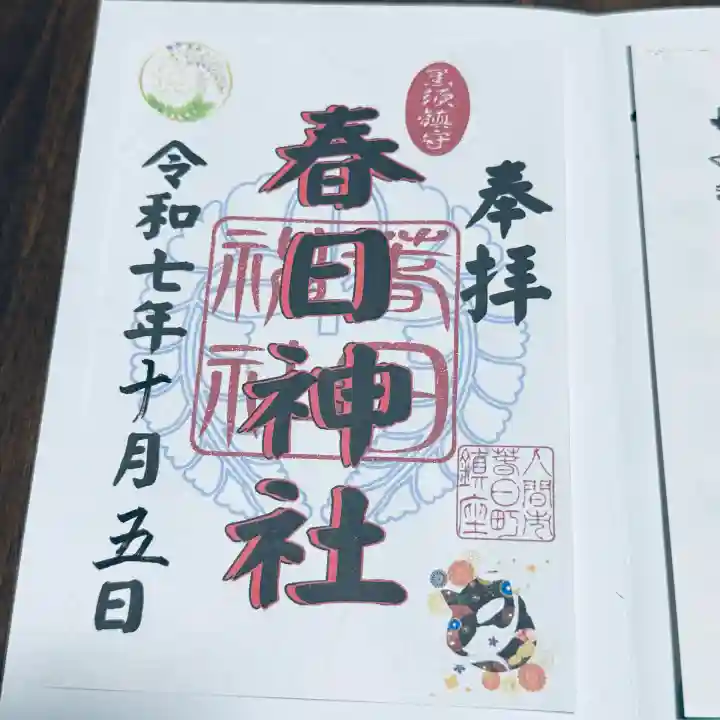 黒須鎮守
奉拝
春日神社
春日神社
入間市
春日町
鎮座
令和七年十月五日